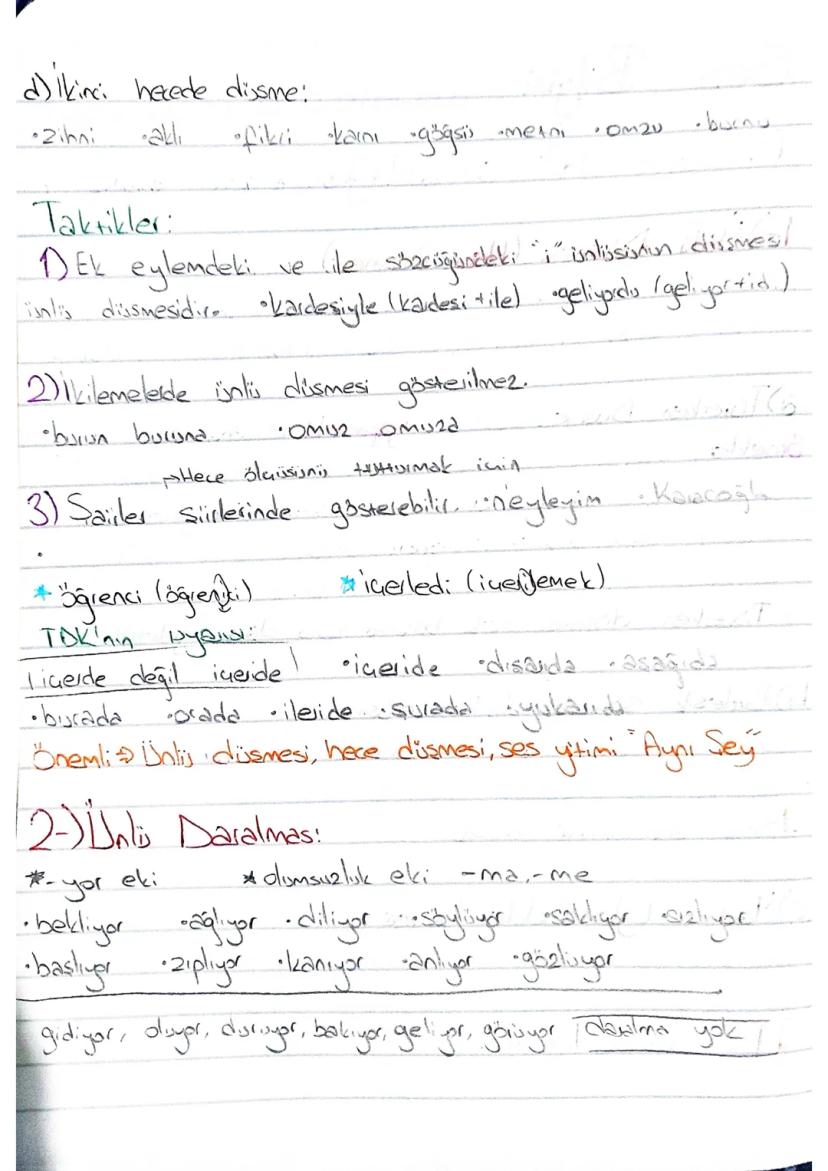 d) İkinci hecede düşme:
•zihni •aklı •fikri •karnı •göğsü •metni •omzu •burnu
Taktikler:
1) Ek eylemdeki ve ile sözcüğündeki "i" ünlüsünün düşmesi
ünlü düşmesidir. •kardeşiyle (kardeşi + ile) •geliyordu (geliyor + idi)
2) İkilemelerde ünlü düşmesi gösterilmez.
•burun buruna •omuz omuza
→Hece ölçüsünü tutturmak için
3) Şairler şiirlerinde gösterebilir. •neyleyim •Karacoğla
•
* öğrenci (öğrenici) * içerledi (içerilemek)
TDK'nın uyarısı:
! içerde değil içeride! •içeride •dışarıda •aşağıda
•burada •orada •ileride •şurada •yukarıda
Önemli ⇒ Ünlü düşmesi, hece düşmesi, ses yitimi "Aynı Şey"
2-) Ünlü Daralması:
*-yor eki * olumsuzluk eki -ma, -me
•bekliyor •ağlıyor •diliyor •söylüyor •saklıyor •sızlıyor
•başlıyor •zıplıyor •kanıyor •anlıyor •gözlüyor
gidiyor, oluyor, duruyor, bakıyor, geliyor, görüyor daralma yok